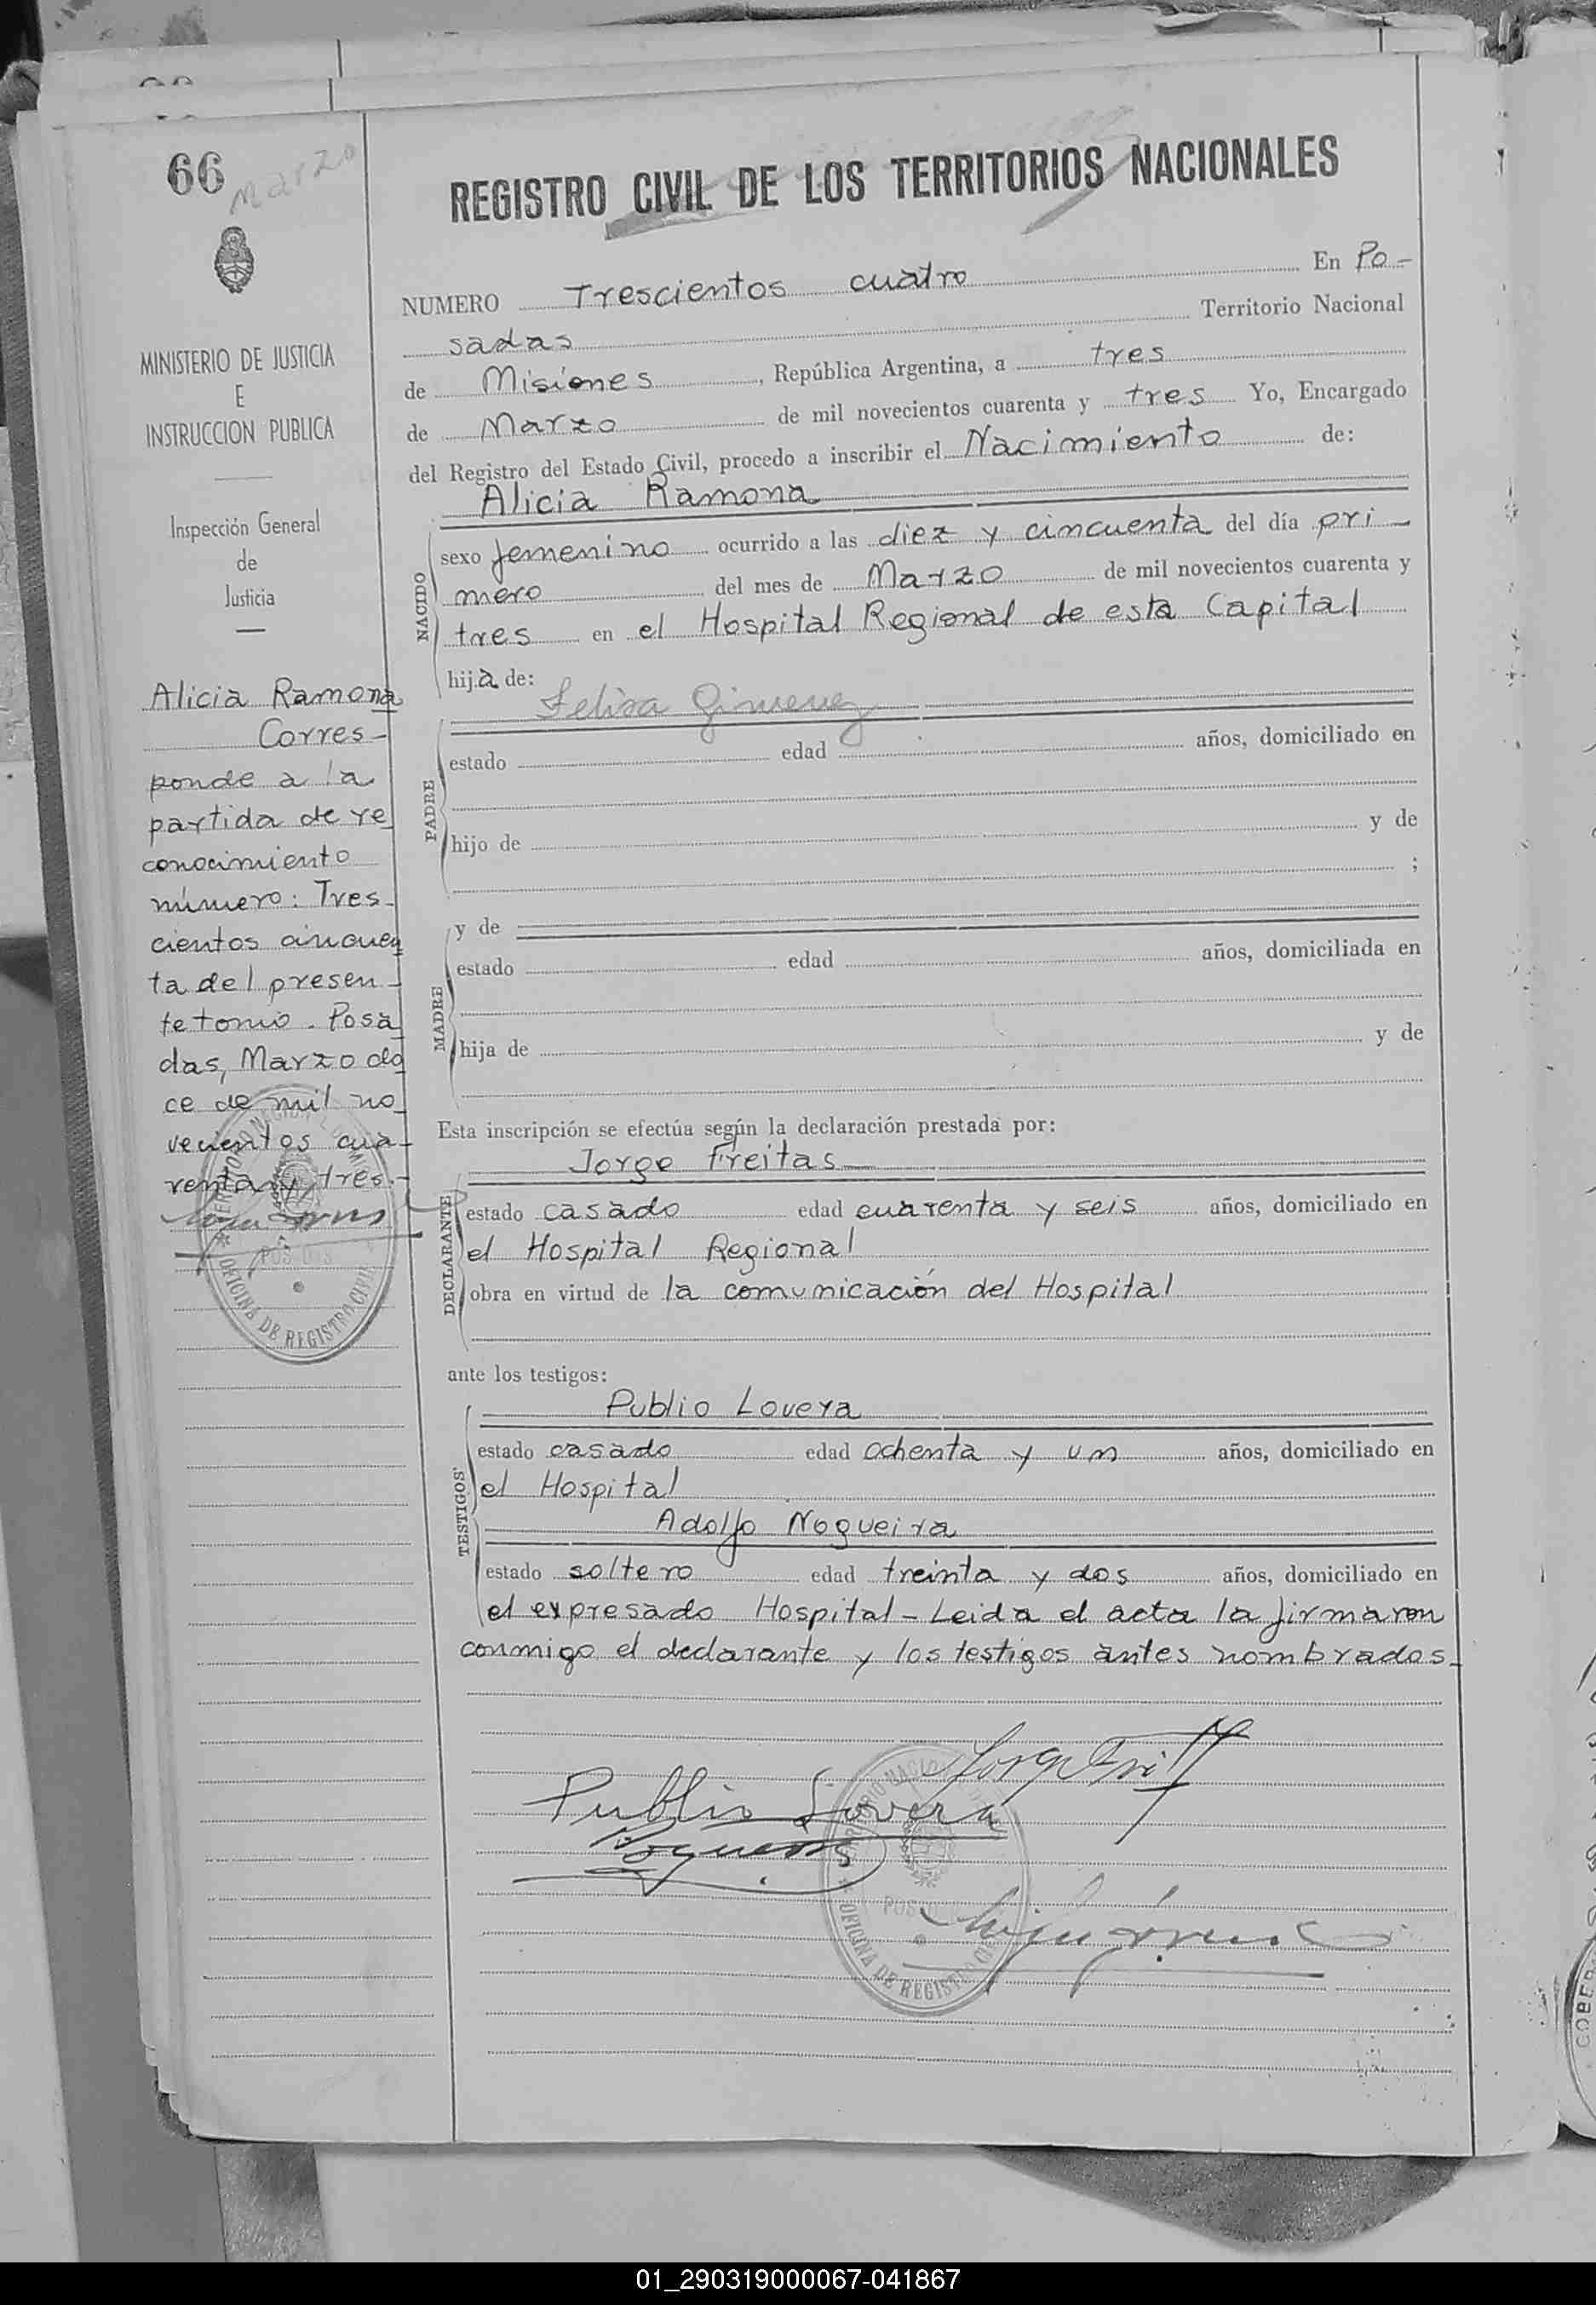 66
marzo
REGISTRO CIVIL DE LOS TERRITORIOS NACIONALES
NUMERO Trescientos cuatro En Po-
sadas Territorio Nacional
de Misiones, República Argentina, a tres
de Marzo de mil novecientos cuarenta y tres Yo, Encargado
del Registro del Estado Civil, procedo a inscribir el Nacimiento de:
Alicia Ramona
NACIDO
sexo femenino ocurrido a las diez y cincuenta del día pri-
mero del mes de Marzo de mil novecientos cuarenta y
tres en el Hospital Regional de esta Capital
hija de:
Felisa Gimenez
PADRE
estado edad años, domiciliado en
hijo de y de
;
y de
MADRE
estado edad años, domiciliada en
hija de y de
Esta inscripción se efectúa según la declaración prestada por:
Jorge Freitas
DECLARANTE
estado casado edad cuarenta y seis años, domiciliado en
el Hospital Regional
obra en virtud de la comunicación del Hospital
ante los testigos:
Publio Lovera
TESTIGOS
estado casado edad ochenta y un años, domiciliado en
el Hospital
Adolfo Nogueira
estado soltero edad treinta y dos años, domiciliado en
el expresado Hospital - Leida el acta la firmaron
conmigo el declarante y los testigos antes nombrados_
Publio Lovera
OFICINA DE REGISTRO
MINISTERIO DE JUSTICIA
E
INSTRUCCION PUBLICA
Inspección General
de
Justicia
Alicia Ramona
Corres-
ponde a la
partida de re
conocimiento
número: Tres-
cientos cincuen
ta del presen-
te tomo. Posa
das, Marzo do
ce de mil no
vecientos cua-
renta y tres.-
OFICINA DE REGISTRO CIVIL
01_290319000067-041867